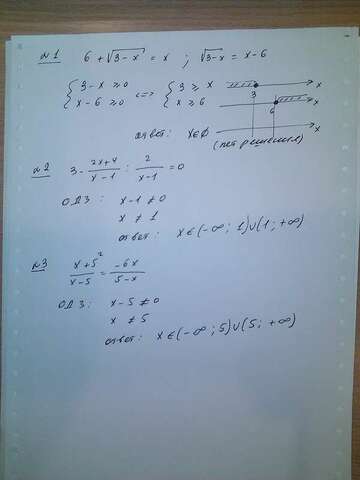 №1 6 + √3-x = x ; √3-x = x-6
{ 3-x ≥ 0 <=> { 3 ≥ x
x-6 ≥ 0 x ≥ 6
3 x
6 x
x
ответ: x∈∅ (нет решения)
№2 3 - 2x+4/x-1 : 2/x-1 = 0
ОДЗ: x-1 ≠ 0
x ≠ 1
ответ: x∈(-∞; 1)∪(1; +∞)
№3 x+5²/x-5 = -6x/5-x
ОДЗ: x-5 ≠ 0
x ≠ 5
ответ: x∈(-∞; 5)∪(5; +∞)